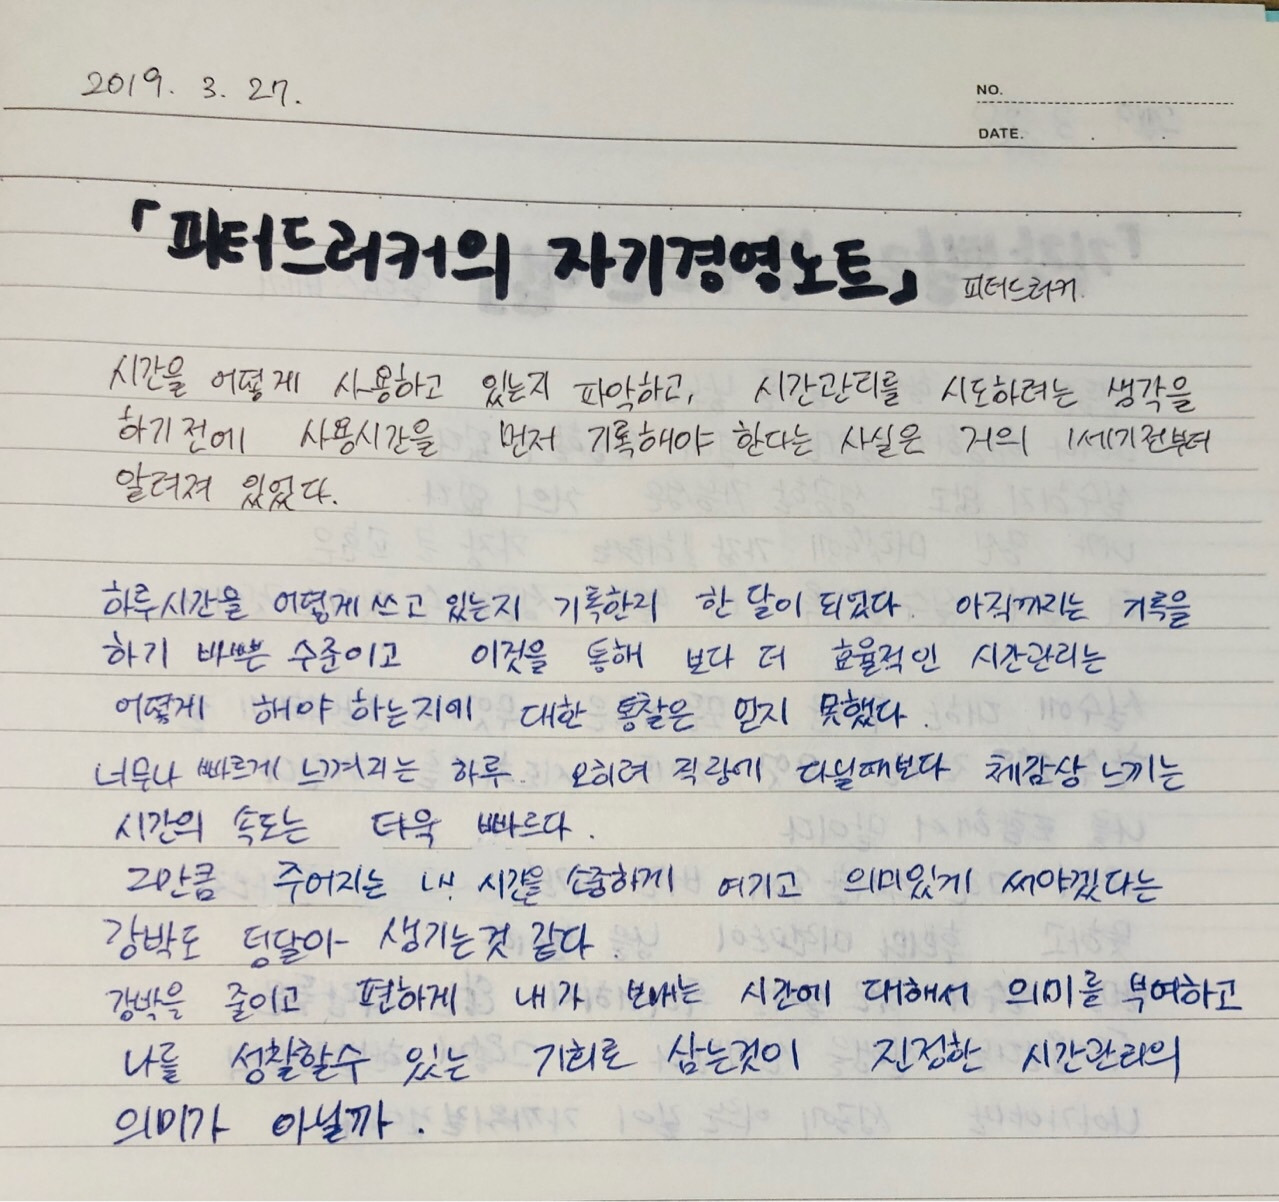 2019. 3. 27.
NO.
DATE.
「피터드러커의 자기경영노트」 피터드러커
시간을 어떻게 사용하고 있는지 파악하고, 시간관리를 시도하려는 생각을
하기 전에 사용시간을 먼저 기록해야 한다는 사실은 거의 1세기전부터
알려져 있었다.
하루시간을 어떻게 쓰고 있는지 기록한지 한 달이 되었다. 아직까지는 기록을
하기 바쁜 수준이고 이것을 통해 보다 더 효율적인 시간관리는
어떻게 해야 하는지에 대한 통찰은 얻지 못했다.
너무나 빠르게 느껴지는 하루. 오히려 직장에 다닐때보다 체감상 느끼는
시간의 속도는 더욱 빠르다.
그만큼 주어지는 내 시간을 소중하게 여기고 의미있게 써야겠다는
강박도 덩달아 생기는것 같다.
강박을 줄이고 편하게 내가 보내는 시간에 대해서 의미를 부여하고
나를 성찰할수 있는 기회로 삼는것이 진정한 시간관리의
의미가 아닐까.